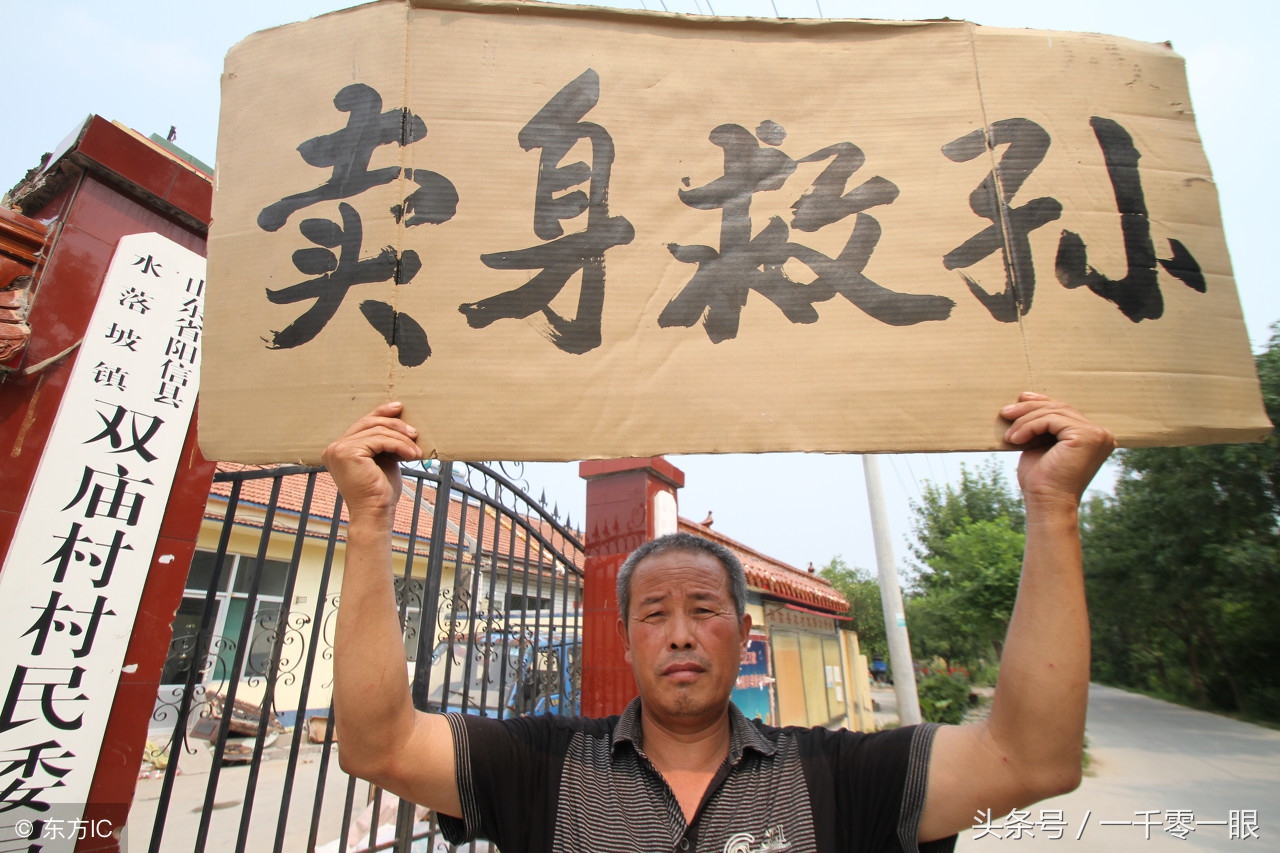 卖身救孙
山东省阳信县
水落坡镇
双庙村村民委
© 东方IC
头条号 / 一千零一眼